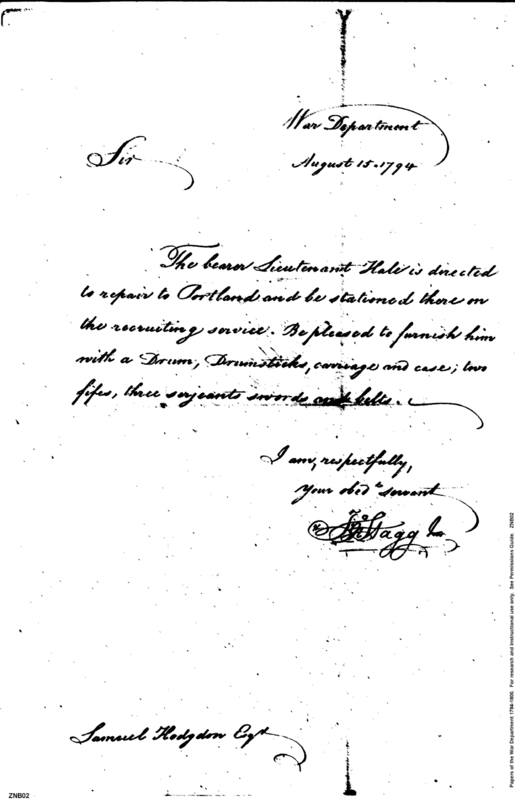 War Department
August 15. 1794
Sir
The bearer Lieutenant Hale is directed
to repair to Portland and be stationed there on
the recruiting service. Be pleased to furnish him
with a Drum, Drumsticks, carriage and case; two
fifes, three serjeants swords and belts.
I am, respectfully,
Your obedt servant
Jno Stagg Jr
Samuel Hodgdon Esqr
ZNB02
Papers of the War Department 1784-1800. For research and instructional use only. See Permissions Guide. ZNB02